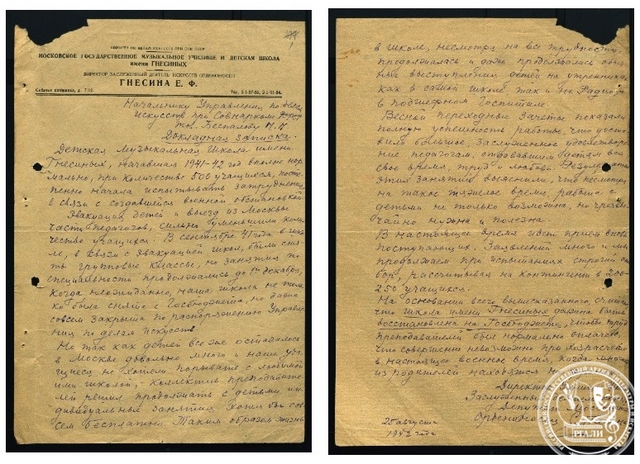 МОСКОВСКОЕ ГОСУДАРСТВЕННОЕ МУЗЫКАЛЬНОЕ УЧИЛИЩЕ И ДЕТСКАЯ ШКОЛА
имени ГНЕСИНЫХ
ДИРЕКТОР ЗАСЛУЖЕННЫЙ ДЕЯТЕЛЬ ИСКУССТВ ОРДЕНОНОСЕЦ
ГНЕСИНА Е. Ф.
Начальнику Управления по делам
искусств при Совнаркоме РСФСР
тов. Беспалову Н.Н.
Докладная записка.
Детская Музыкальная Школа имени
Гнесиных, начавшая 1941-42 год вполне нор
мально, при количестве 500 учащихся, пост
пенно начала испытывать затруднения
в связи с создавшейся военной обстановкой
Эвакуация детей и выезд из Москвы
части педагогов, сильно уменьшили коли
чество учащихся. В сентябре 41 года в
в связи с эвакуацией школ, были сня
ты групповые классы, но занятия по
специальности продолжались до 1го декабря,
когда неожиданно, наша школа не толь
ко была снята с Госбюджета, но даже
совсем закрыта по распоряжению Управле
ния по делам искусств.
Но так как детей все же осталось
в Москве довольно много и наши уча
щиеся не хотели порывать с любимой
ими школой, коллектив преподавате
лей решил продолжать с детьми ин
дивидуальные занятия, хотя бы сов
сем бесплатно. Таким образом жизнь
в школе, несмотря на все трудности,
продолжалась и даже продолжались обыч
ные выступления детей на утренниках
как в самой школе так и по Радио и
в Подшефном Госпитале.
Весной переходные зачеты показали
полную успешность работы, что доста
вило большое, заслуженное удовлетворе
ние педагогам, отдававшим детям все
свое время, труд и любовь.
эти занятия выяснили, что несмотря
на такое тяжелое время, работа с
детьми не только возможна, но чрезвы
чайно нужна и полезна.
В настоящее время идет прием вновь
поступающих. Заявлений много и мы
продолжаем при испытаниях строгий от
бор, рассчитывая на контингент в 200-
250 учащихся.
На основании всего вышесказанного
что школа имени Гнесиных должна быть
восстановлена на Госбюджете, чтобы труд
преподавателей был нормально оплачен,
что совершенно невозможно при
в настоящее военное время, когда многие
из родителей находятся
Директор
Заслуженный
Орденоносец
25 августа
1942 года
РГАЛИ